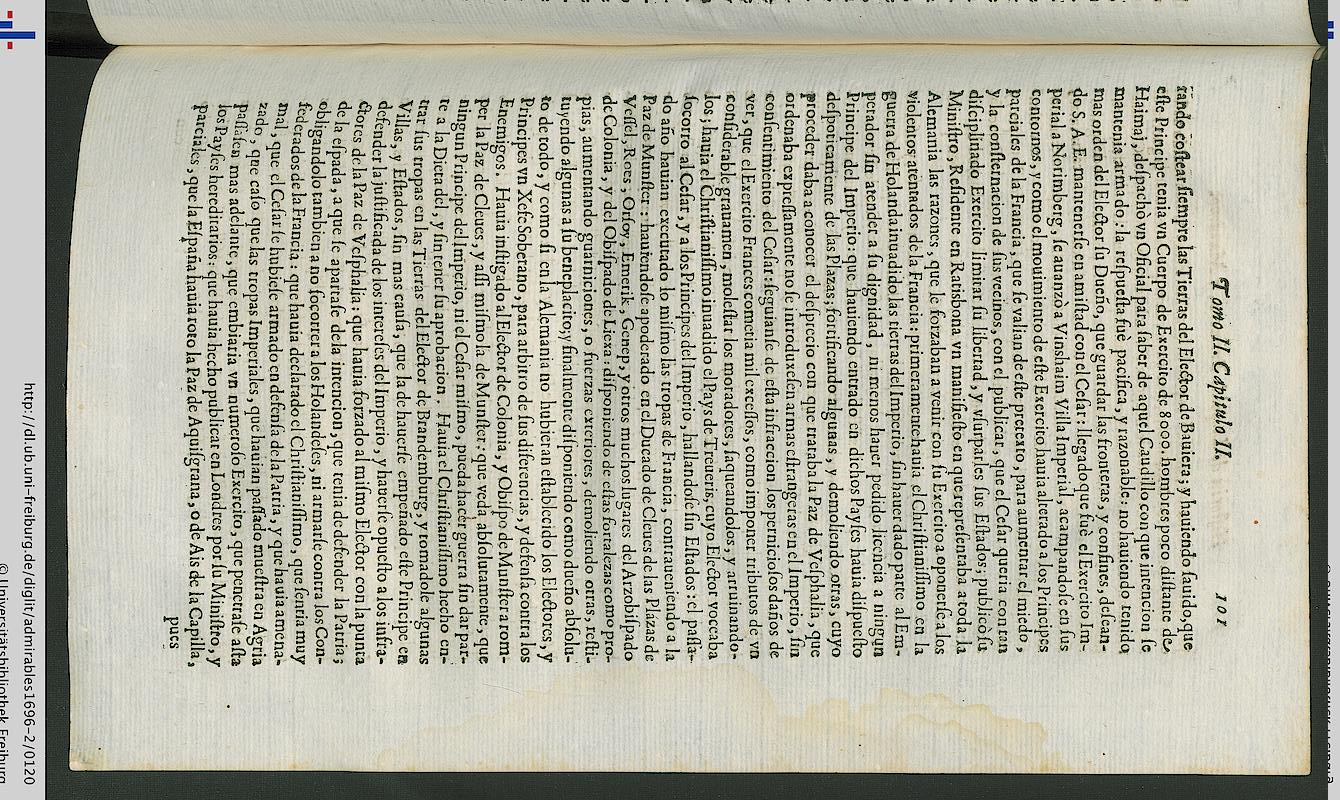 Tomo II. Capitulo II. 101
rando costear siempre las Tierras del Elector de Bauiera; y hauiendo sauido, que
este Principe tenia vn Cuerpo de Exercito de 8000. hombres poco distante de
Haimaj, despachò vn Oficial para saber de aquel Caudillo con que intencion se
mantenia armado: la respuesta fuè pacifica, y razonable: no hauiendo tenido
mas orden del Elector su Dueño, que guardar las fronteras, y confines, desean-
do S. A. E. mantenerse en amistad con el Cesar: llegado que fuè el Exercito Im-
perial a Norimberg, se auanzò a Vinshaim Villa Imperial, acampandose en sus
contornos, y como el mouimiento de este Exercito hauia alterado a los Principes
parciales de la Francia, que se valian de este pretexto, para aumentar el miedo,
y la consternacion de sus vecinos, con el publicar, que el Cesar queria con tan
disciplinado Exercito limitar su libertad, y vsurparles sus Estados; publicò su
Ministro, Residente en Ratisbona vn manifiesto en que representaba a toda la
Alemania las razones, que le forzaban a venir con su Exercito a oponerse a los
violentos atentados de la Francia: primeramente hauia el Christianissimo en la
guerra de Holanda inuadido las tierras del Imperio, sin hauer dado parte al Em-
perador sin atender a su dignidad, ni menos hauer pedido licencia a ningun
Principe del Imperio: que hauiendo entrado en dichos Payses hauia dispuesto
despoticamente de las Plazas; fortificando algunas, y demoliendo otras, cuyo
proceder daba a conocer el desprecio con que trataba la Paz de Vesphalia, que
ordenaba expressamente no se introduxesen armas estrangeras en el Imperio, sin
consentimiento del Cesar: seguianse de esta infraccion los perniciosos daños de
ver, que el Exercito Frances cometia mil excessos, como imponer tributos de vn
considerable grauamen, molestar los moradores, saqueandolos, y arruinando-
los; hauia el Christianissimo inuadido el Pays de Treueris, cuyo Elector voccaba
socorro al Cesar, y a los Principes del Imperio, hallandose sin Estados: el pasa-
do año hauian executado lo mismo las tropas de Francia, contrauiniendo a la
Paz de Munster: hauiendose apoderado en el Ducado de Cleues de las Plazas de
Vessel, Rees, Orsoy, Emerik, Genep, y otros muchos lugares del Arzobispado
de Colonia, y del Obispado de Liexa: disponiendo de estas fortalezas como pro-
pias, aumentando guarniciones, o fuerzas exteriores, demoliendo otras, resti-
tuyendo algunas a su beneplacito; y finalmente disponiendo como dueño absolu-
to de todo, y como si en la Alemania no hubieran establecido los Electores, y
Principes vn Xefe Soberano, para arbitro de sus diferencias, y defensa contra los
Enemigos. Hauia instigado al Elector de Colonia, y Obispo de Munster a rom-
per la Paz de Cleues, y assi mismo la de Munster: que veda absolutamente, que
ningun Principe del Imperio, ni el Cesar mismo, pueda hacer guerra sin dar par-
te a la Dieta del, y sin tener su aprobacion. Hauia el Christianissimo hecho en-
trar sus tropas en las Tierras del Elector de Brandemburg, y tomadole algunas
Villas, y Estados, sin mas causa, que la de hauerse empeñado este Principe en
defender la justificada de los intereses del Imperio, y hauerse opuesto a los infra-
ctores de la Paz de Vesphalia: que hauia forzado al mismo Elector con la punta
de la espada, a que se apartase de la intencion, que tenia de defender la Patria;
obligandolo tambien a no socorrer a los Holandeses, ni armarse contra los Con-
federados de la Francia: que hauia declarado el Christianissimo, que sentia muy
mal, que el Cesar se hubiese armado en defensa de la Patria, y que hauia amena-
zado, que caso que las tropas Imperiales, que hauian passado muestra en Agria
passasen mas adelante, que embiaria vn numeroso Exercito, que penetrase asta
los Payses hereditarios: que hauia hecho publicar en Londres por su Ministro, y
parciales, que la España hauia roto la Paz de Aquisgrana, o de Ais de la Capilla,
pues
http://dl.ub.uni-freiburg.de/diglit/admirables1696-2/0120
© Universitätsbibliothek Freiburg